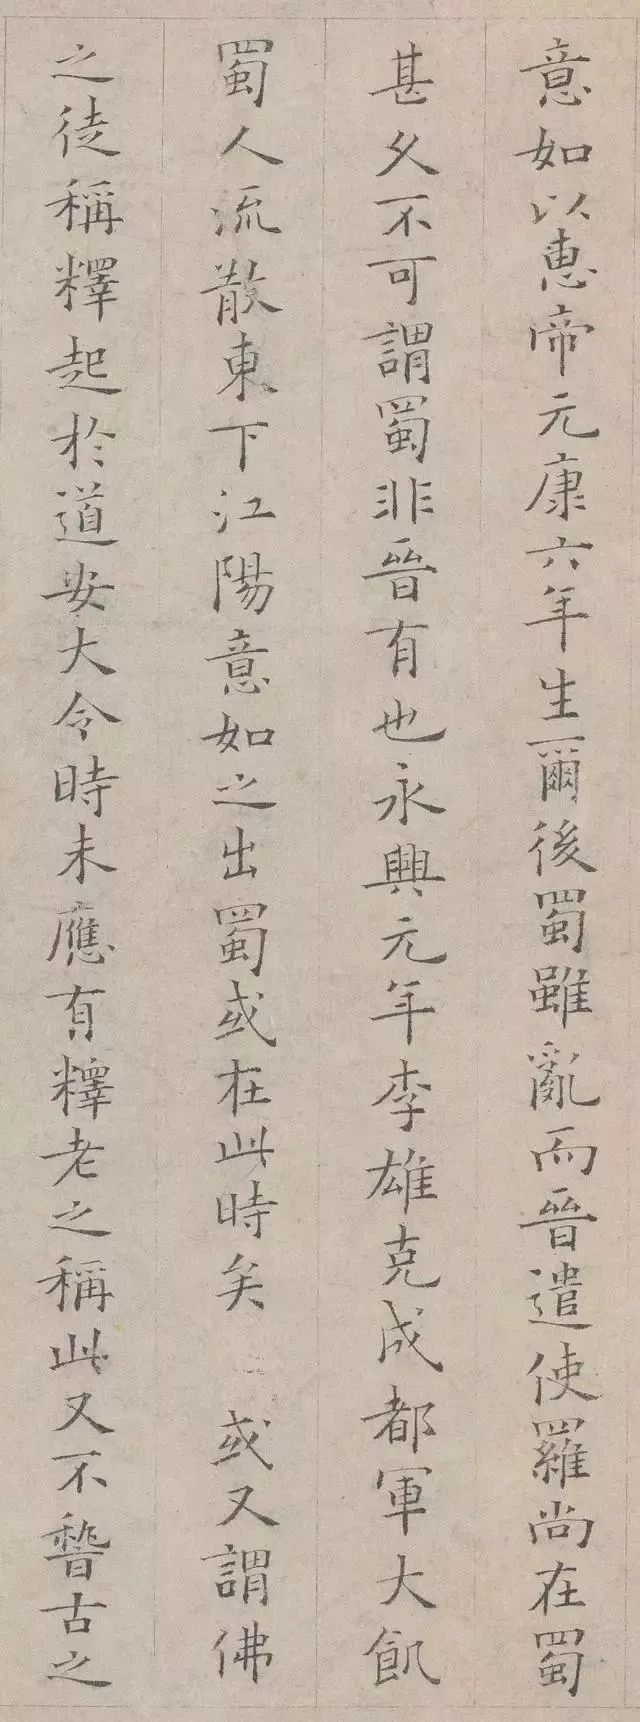 意如以惠帝元康六年生爾後蜀雖亂而晉遣使羅尚在蜀
甚久不可謂蜀非晉有也永興元年李雄克成都軍大飢
蜀人流散東下江陽意如之出蜀或在此時矣 或又謂佛
之徒稱釋起於道安大令時未應有釋老之稱此又不稽古之